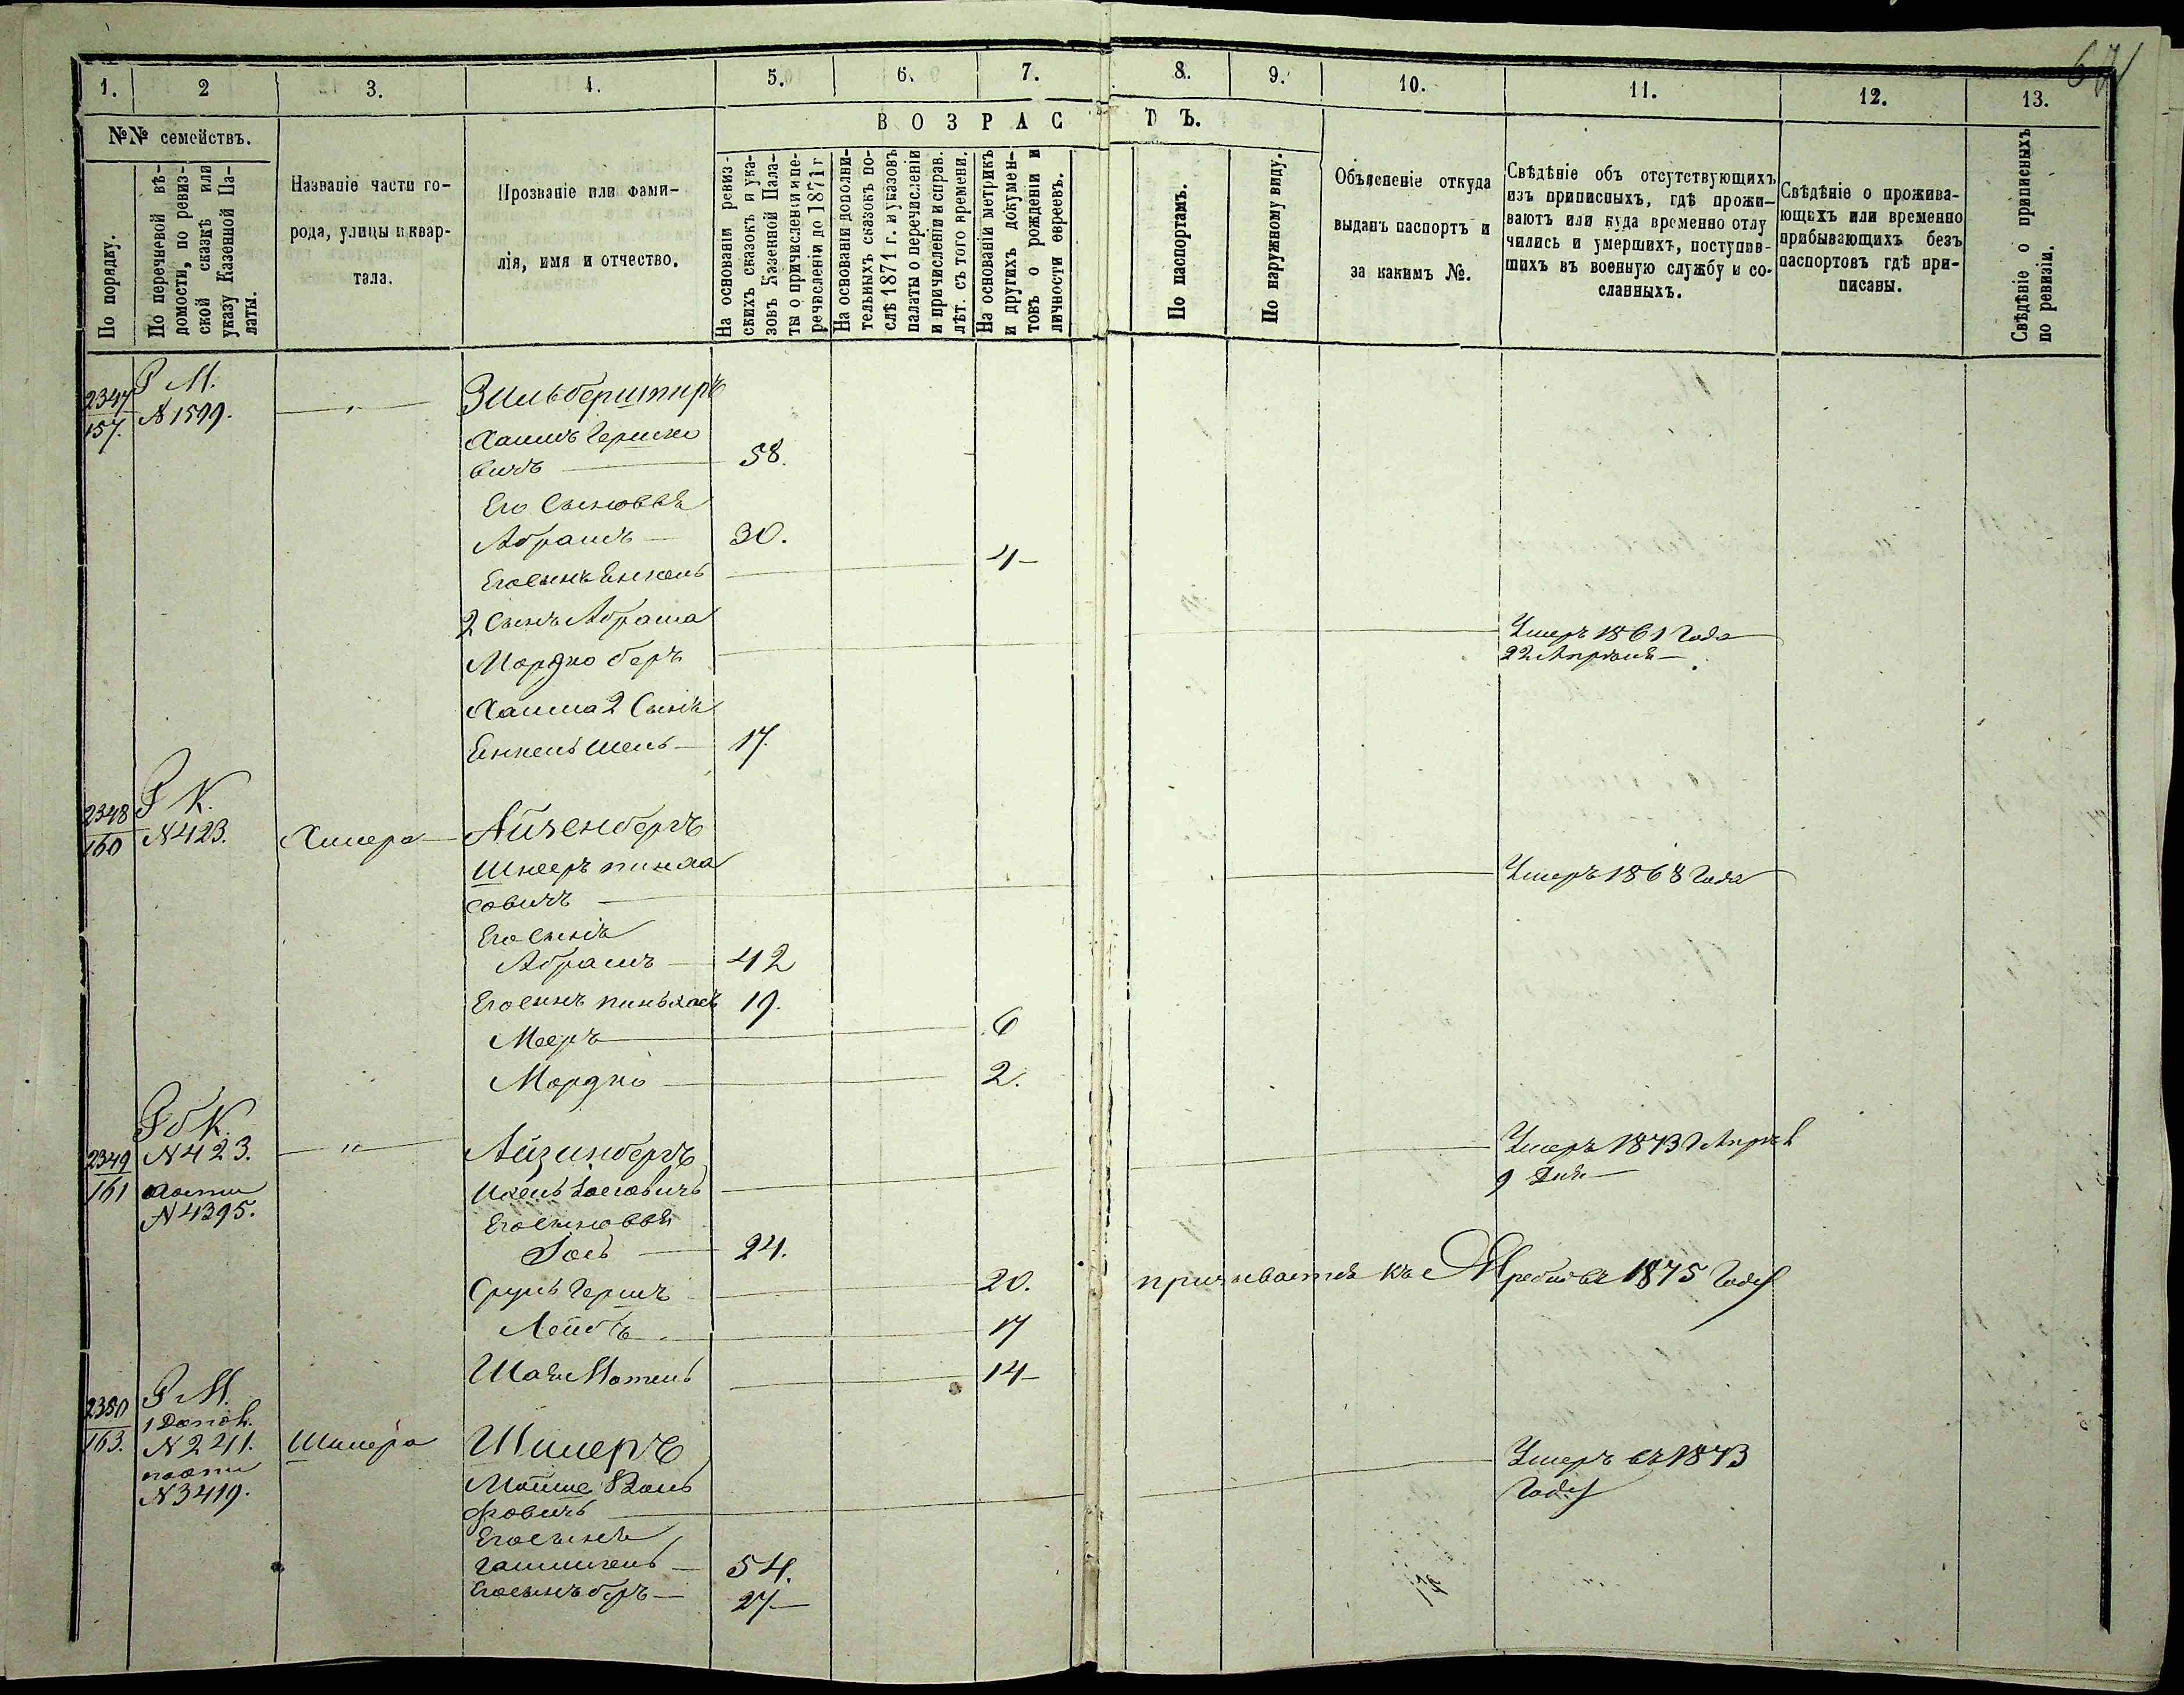 671
1. 2 3. 4. 5. 6. 7. 8. 9. 10. 11. 12. 13.
№№ семействъ.
ВОЗРАСТЪ.
По порядку.
По перечневой вѣ-
домости, по ревиз-
ской сказкѣ или
указу Казенной Па-
латы.
Названіе части го-
рода, улицы и квар-
тала.
Прозваніе или фами-
лія, имя и отчество.
На основаніи ревиз-
скихъ сказокъ и ука-
зовъ Казенной Пала-
ты о причисленіи и пе-
речисленіи до 1871 г
На основаніи дополни-
тельныхъ сказокъ по-
слѣ 1871 г. и указовъ
палаты о перечисленіи
и причисленіи и справ.
лѣт. съ того времени.
На основаніи метрикъ
и другихъ докумен-
товъ о рожденіи и
личности евреевъ.
По паспортамъ.
По наружному виду.
Объясненіе откуда
выданъ паспортъ и
за какимъ №.
Свѣдѣніе объ отсутствующихъ
изъ приписныхъ, гдѣ прожи-
ваютъ или куда временно отлу
чились и умершихъ, поступив-
шихъ въ военную службу и со-
сланныхъ.
Свѣдѣніе о прожива-
ющихъ или временно
прибывающихъ безъ
паспортовъ гдѣ при-
писаны.
Свѣдѣніе о приписныхъ
по ревизіи.
2347 Р М.
157. N 1599. — " — Зильберштиръ
Хаимъ Гершко
вичъ — 58.
Его Сыновья
Абрамъ — 30.
Его сынъ Енкель — 4 —
2 Сынъ Абрама
Мордко беръ — Умеръ 1861 Года
22 Апрѣля —
Хаима 2 Сынъ
Енкель Шель — 17.
2348 Р К.
160 N 423. Хиера — Айзенбергъ
Шнееръ пинха
совичъ — Умеръ 1868 Года
Его сынъ
Абрамъ — 42
Его сынъ пинъхасъ 19.
Мееръ — 6
Мордко — 2.
Р б К.
2349 N 423. — " — Айзинбергъ
161 N 4395.
Икель Іосіовичъ — Умеръ 1873 Г Апрѣл
9 Дня —
Его сыновья
Іось — 24.
Сруль Гершъ — 20. призывается къ Жребію въ 1875 Году
Лейбъ — 17
Шая Мотель — 14 —
2350 Р М.
1 Допол.
163. N 2211. Шмера Шмеръ
N 3419.
Мойше Воль
фовичъ — Умеръ въ 1873
Году
Его сынъ
— 54.
Его сынъ беръ — 27 —